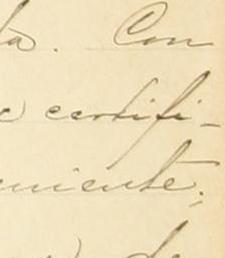 la. Con
e certifi-
niente.
de